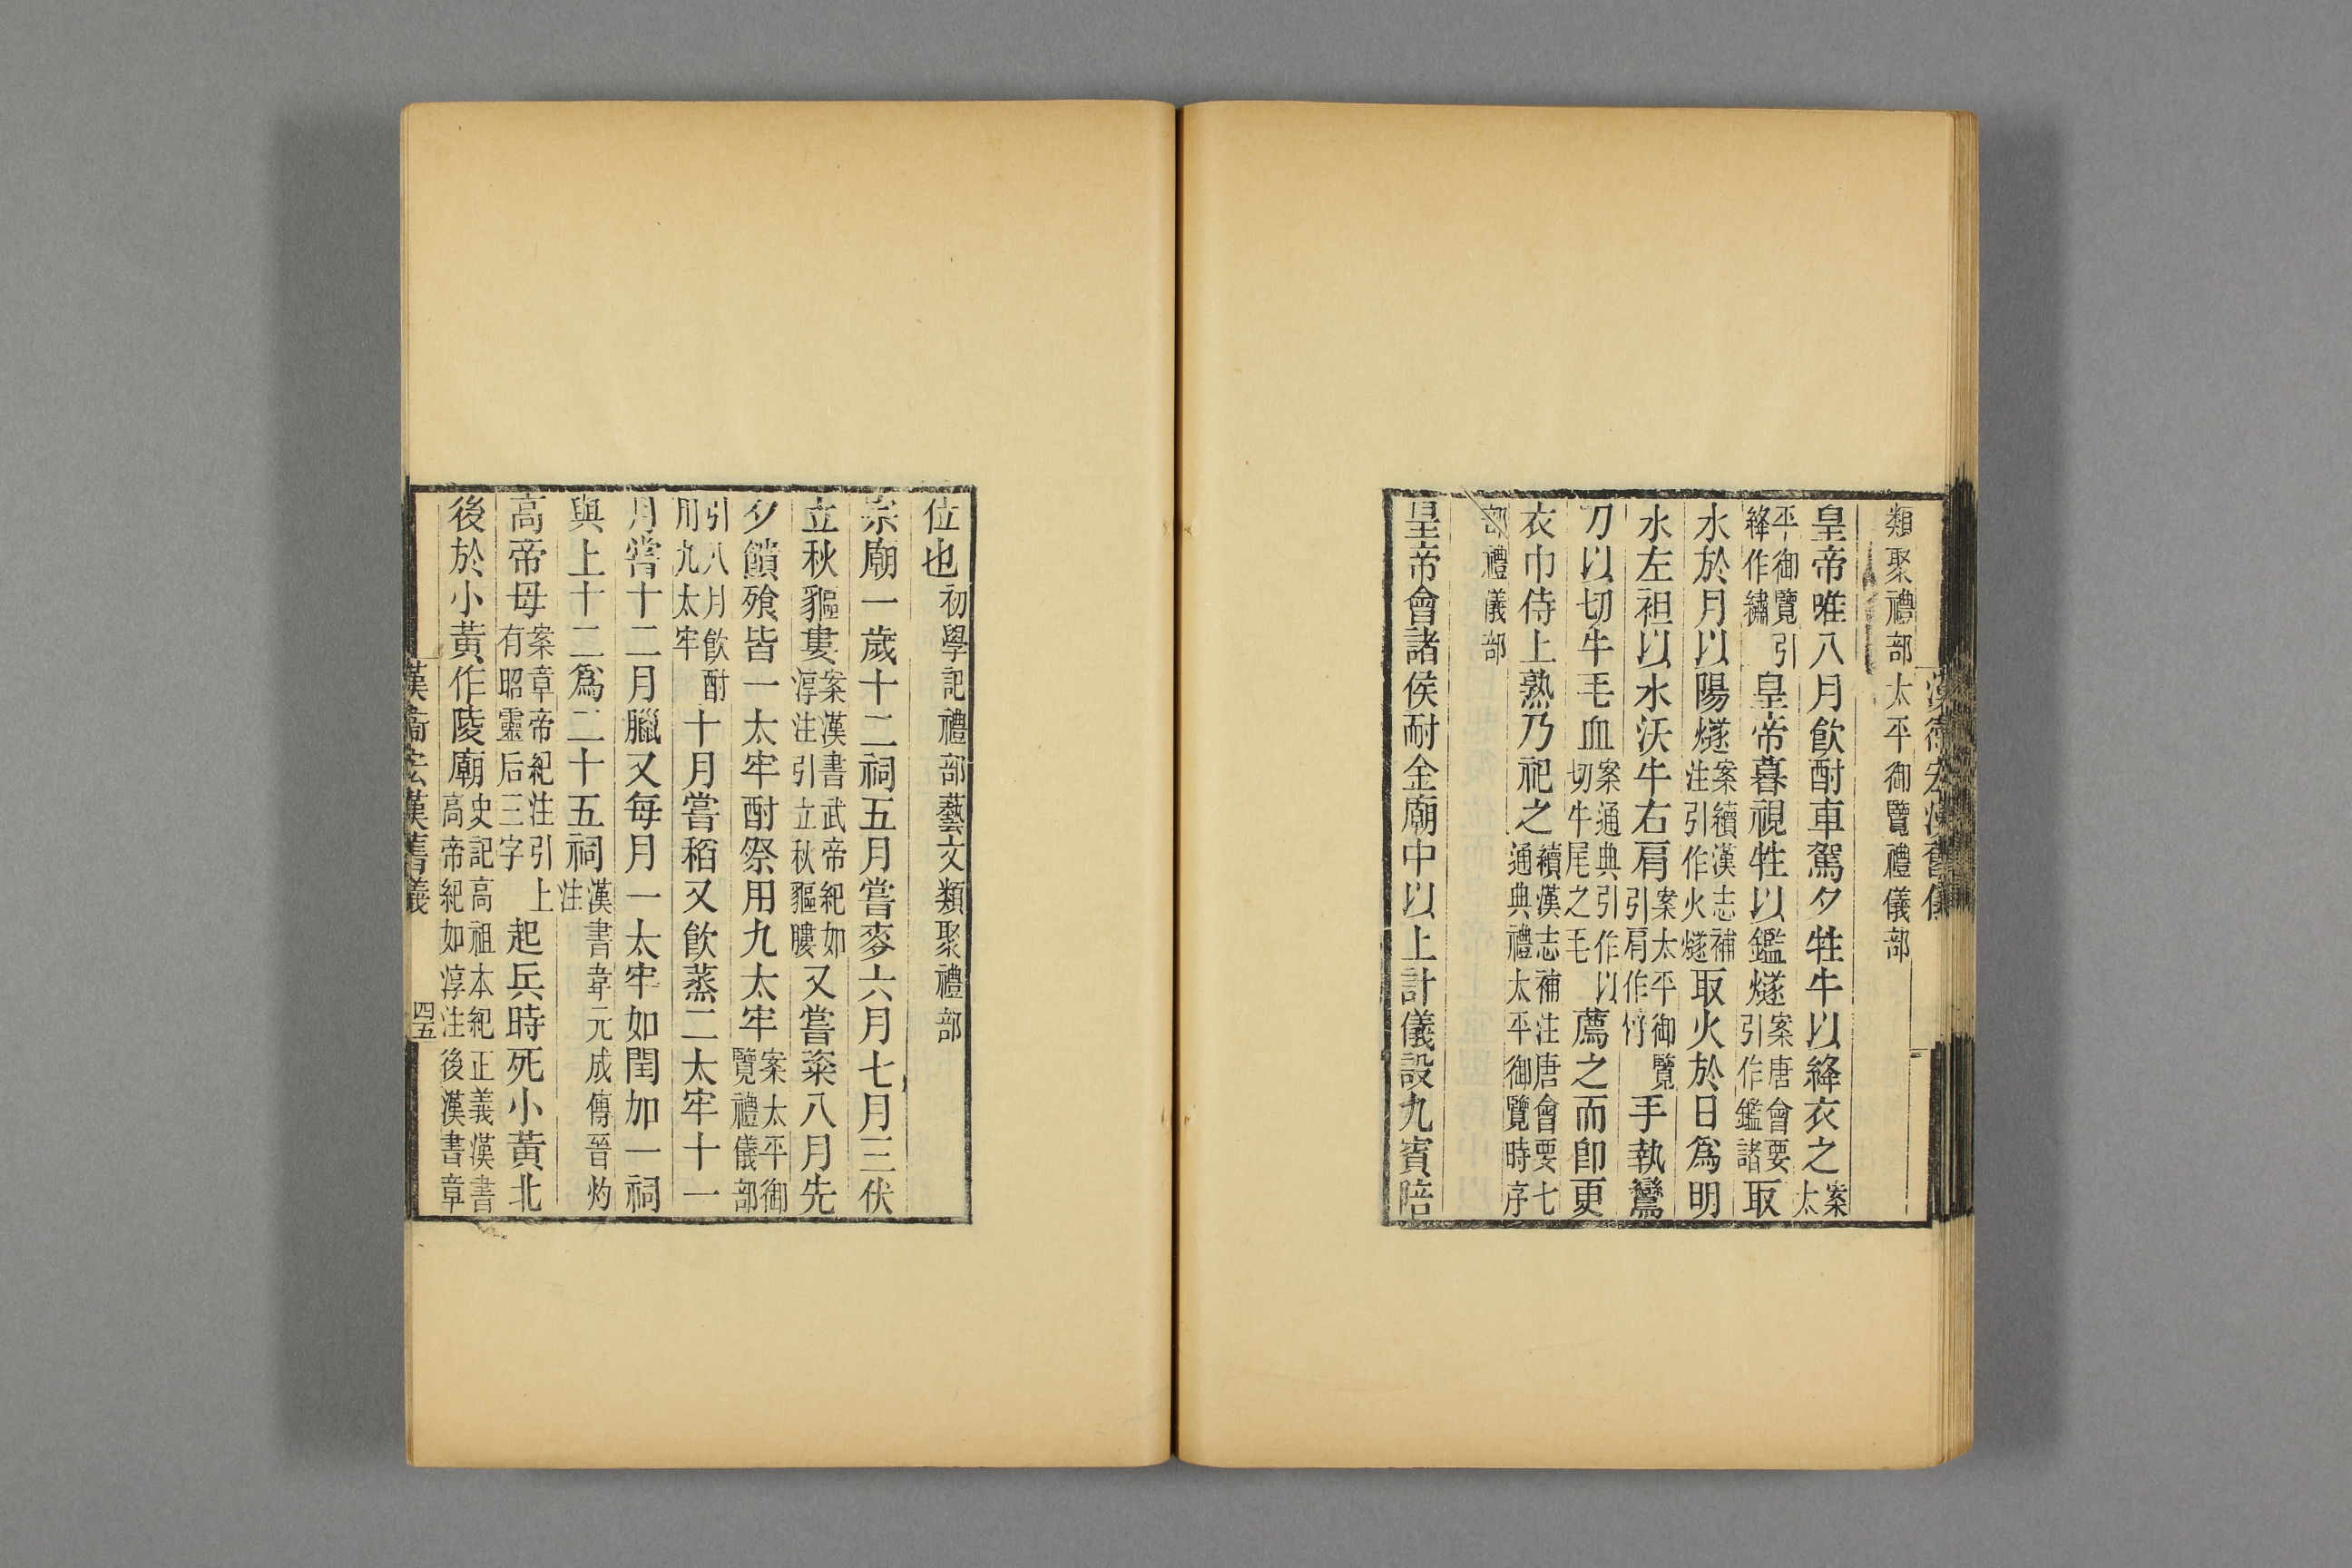 漢衛宏漢舊儀
類聚禮部太平御覽禮儀部
皇帝唯八月飮酎車駕夕牲牛以絳衣之案太
平御覽引絳作繡皇帝暮視牲以鑑燧案唐會要引作鑑諸取
水於月以陽燧案續漢志補注引作火燧取火於日爲明
水左袒以水沃牛右肩案太平御覽引肩作手執鸞
刀以切牛毛血案通典引作以切牛尾之毛薦之而卽更
衣巾侍上熟乃祀之續漢志補注唐會要七通典禮太平御覽時序
部禮儀部
皇帝會諸侯耐金廟中以上計儀設九賓陪
位也初學記禮部藝文類聚禮部
宗廟一歲十二祠五月嘗麥六月七月三伏
立秋貙婁案漢書武帝紀如淳注引立秋貙膢又嘗粢八月先
夕饋飱皆一太牢酎祭用九太牢案太平御覽禮儀部
引八月飮酎用九太牢十月嘗稻又飮蒸二太牢十一
月嘗十二月臘又每月一太牢如閏加一祠
與上十二爲二十五祠漢書韋元成傳晉灼注
高帝母案章帝紀注引上有昭靈后三字起兵時死小黃北
後於小黃作陵廟史記高祖本紀正義漢書高帝紀如淳注後漢書章
漢衛宏漢舊儀 四五